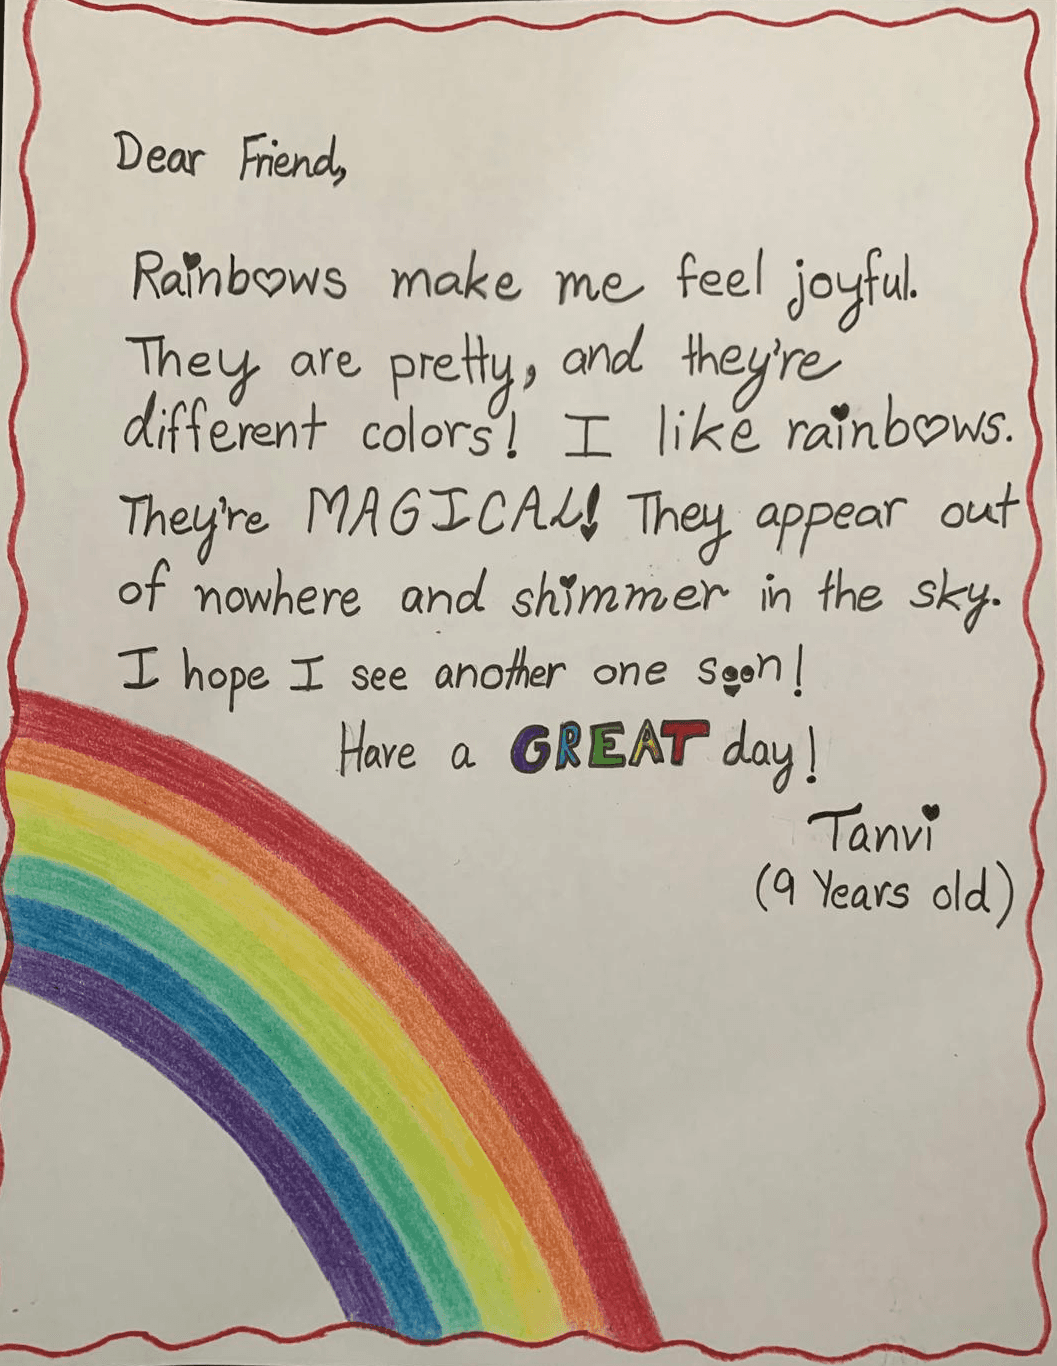 Dear Friend,
Rainbows make me feel joyful.
They are pretty, and they're
different colors! I like rainbows.
They're MAGICAL! They appear out
of nowhere and shimmer in the sky.
I hope I see another one soon!
Have a GREAT day!
Tanvi
(9 Years old)